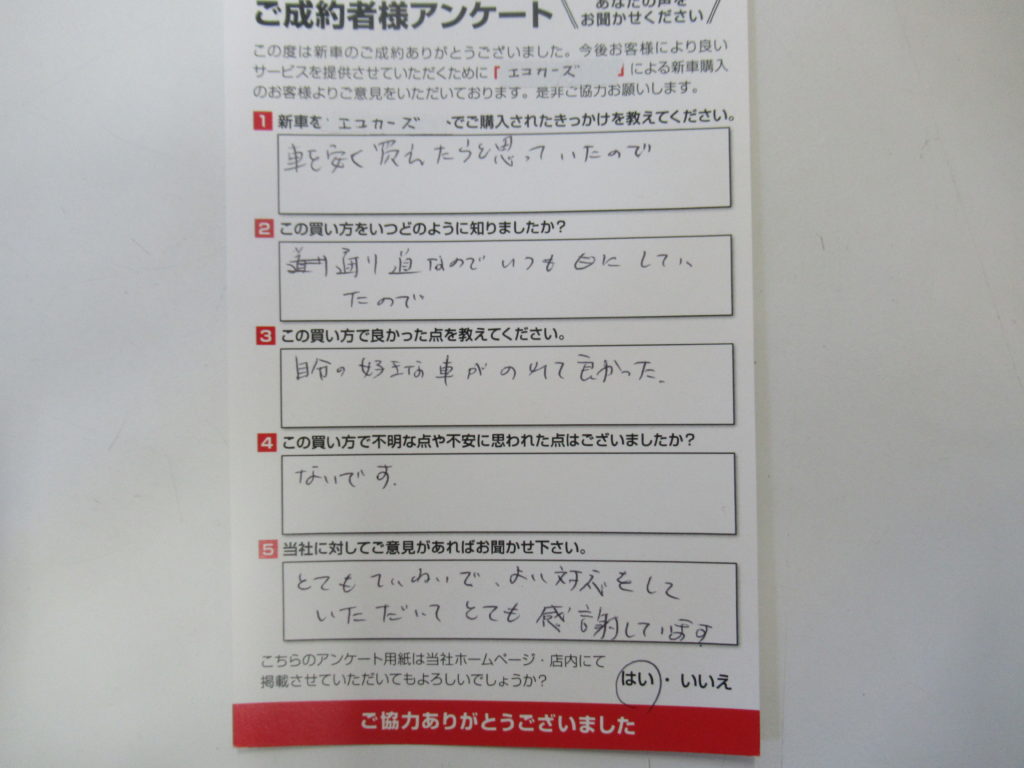 ご成約者様アンケート
あなたの声を
お聞かせください
この度は新車のご成約ありがとうございました。今後お客様により良い
サービスを提供させていただくために「エコカーズ」による新車購入
のお客様よりご意見をいただいております。是非ご協力お願いします。
1 新車を エコカーズ でご購入されたきっかけを教えてください。
車を安く買えたらと思っていたので
2 この買い方をいつどのように知りましたか?
通り道なのでいつも目にしてい
たので
3 この買い方で良かった点を教えてください。
自分の好きな車がのれて良かった.
4 この買い方で不明な点や不安に思われた点はございましたか?
ないです.
5 当社に対してご意見があればお聞かせ下さい。
とてもていねいで、よい対応をして
いただいてとても感謝しています
こちらのアンケート用紙は当社ホームページ・店内にて
掲載させていただいてもよろしいでしょうか?
はい・いいえ
ご協力ありがとうございました